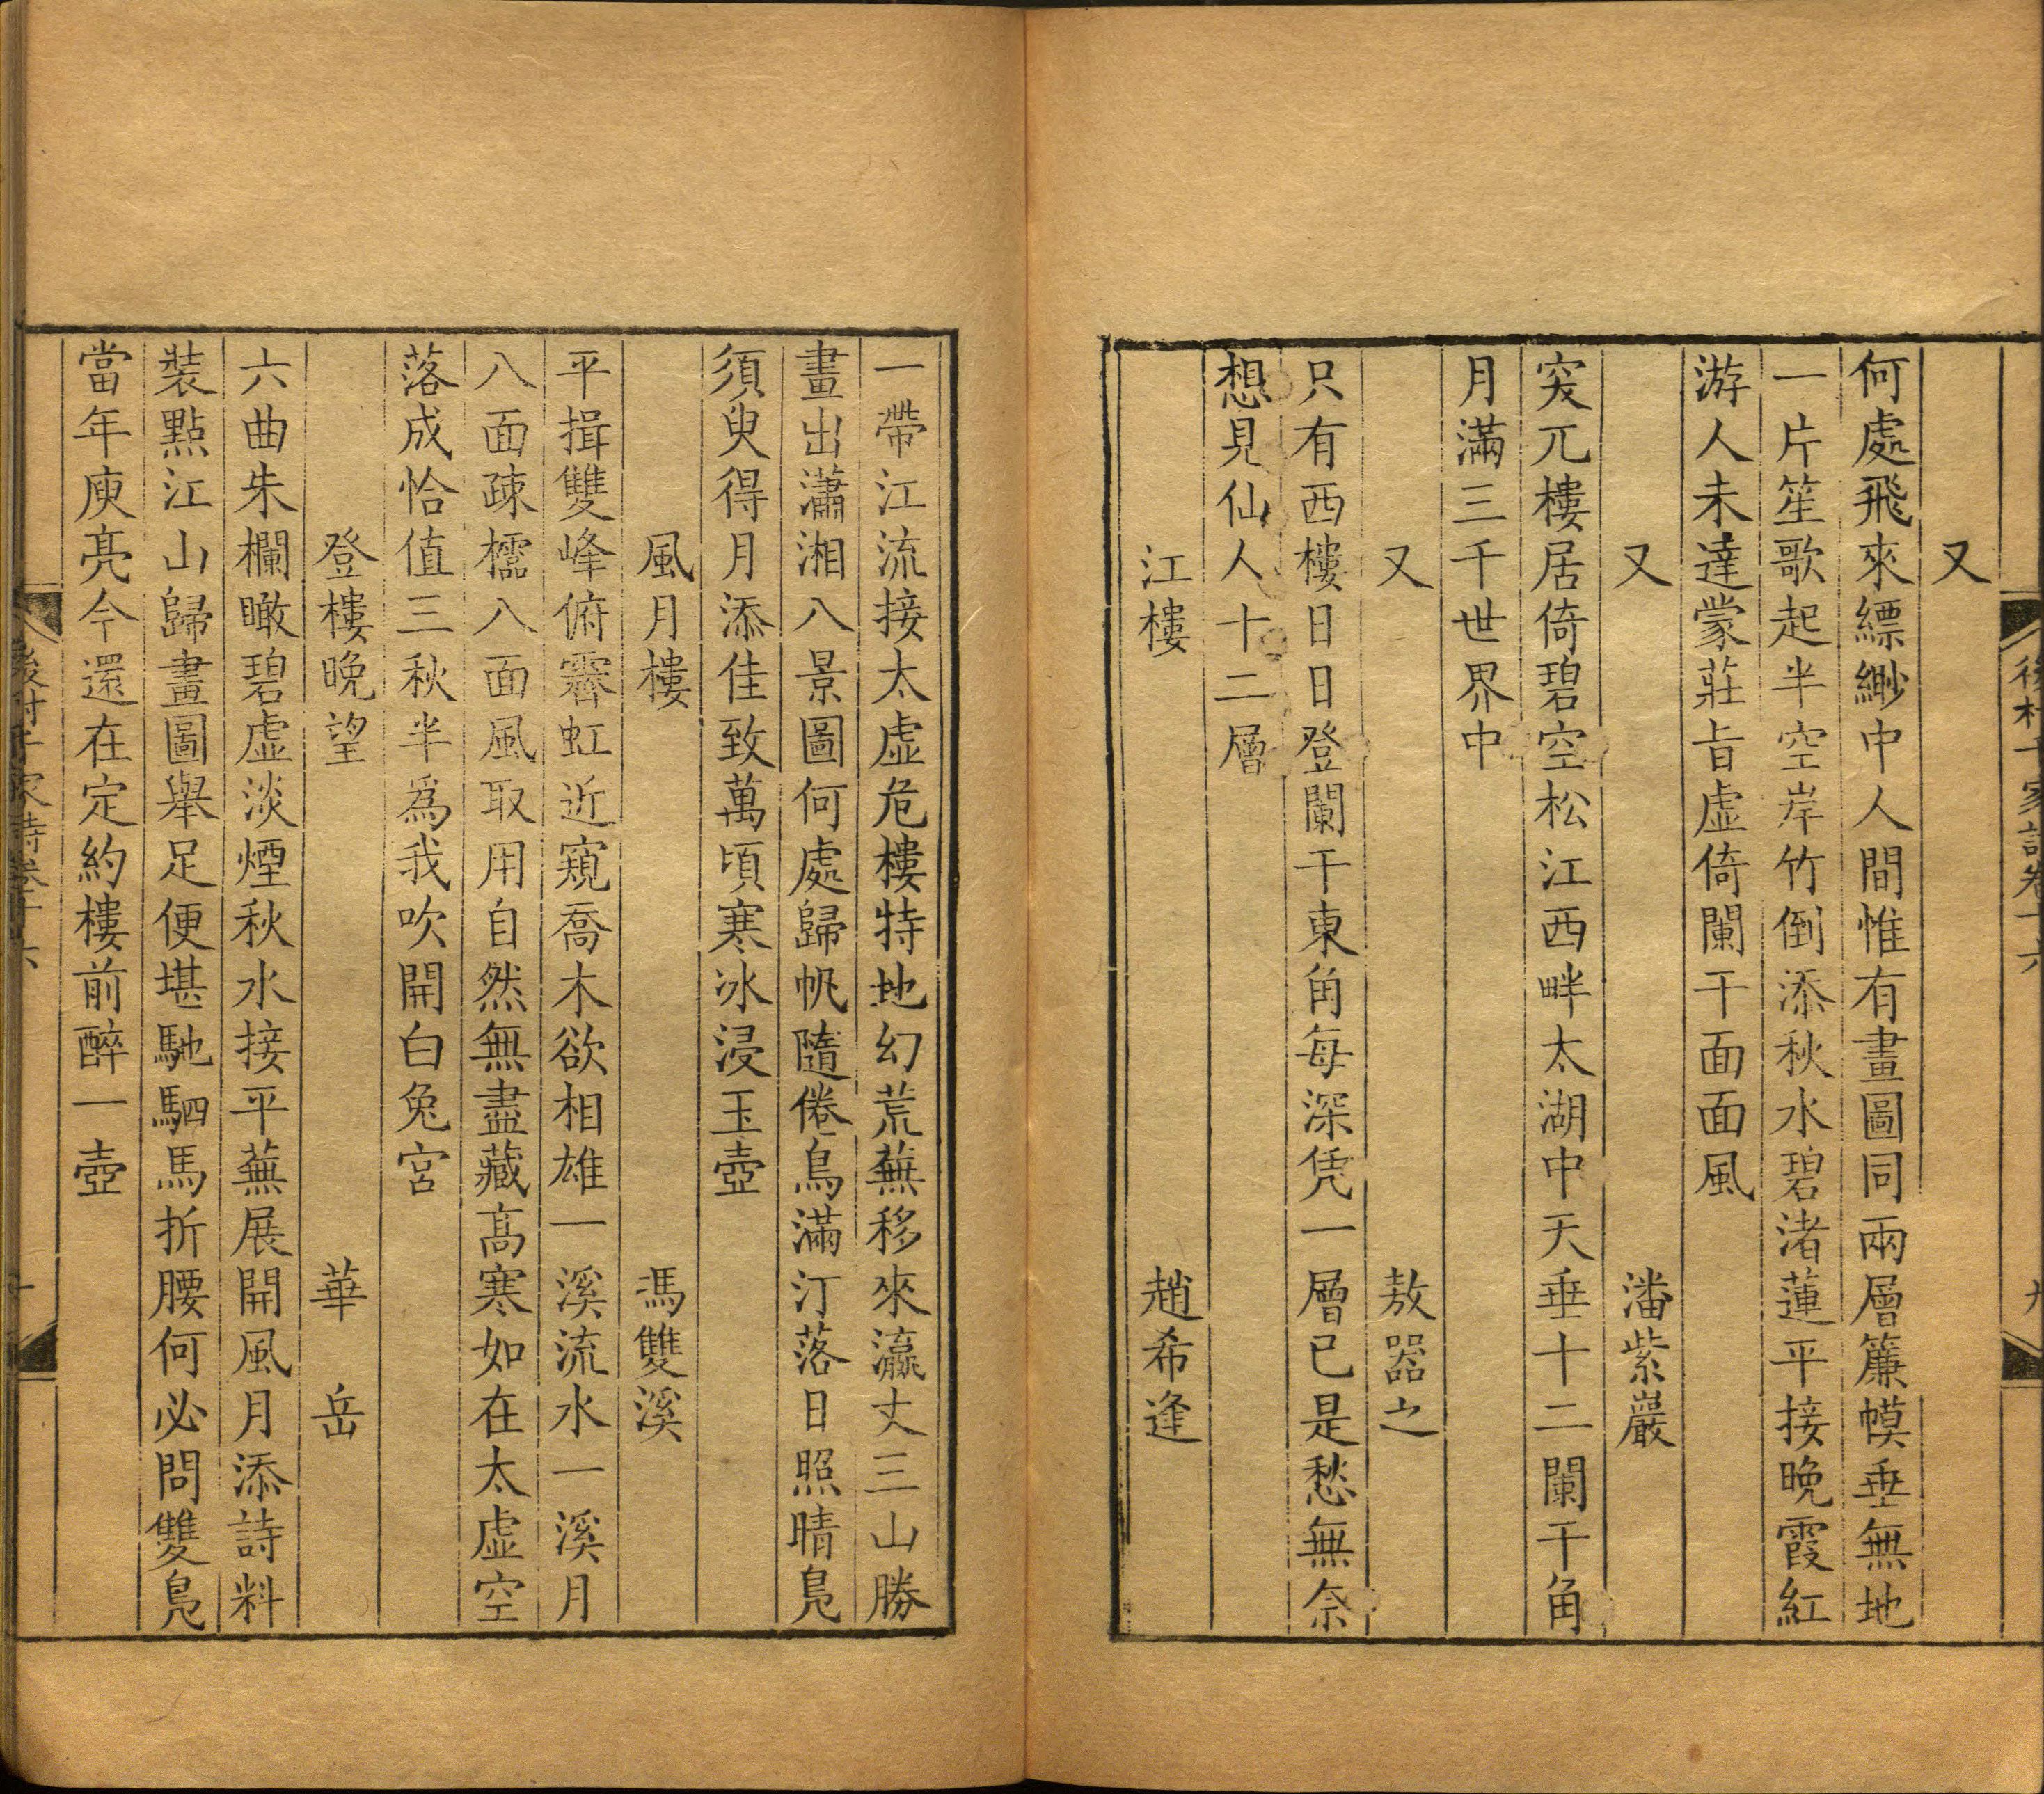 又
何處飛來縹緲中人間惟有畫圖同兩層簾幙垂無地
一片笙歌起半空岸竹倒添秋水碧渚蓮平接晚霞紅
游人未達蒙莊旨虛倚闌干面面風
又 潘紫巖
突兀樓居倚碧空松江西畔太湖中天垂十二闌干角
月滿三千世界中
又 敖器之
只有西樓日日登闌干東角每深凭一層已是愁無奈
想見仙人十二層
江樓 趙希逢
一帶江流接太虛危樓特地幻荒蕪移來瀛丈三山勝
畫出瀟湘八景圖何處歸帆隨倦鳥滿汀落日照晴鳧
須臾得月添佳致萬頃寒冰浸玉壺
風月樓 馮雙溪
平揖雙峰俯霽虹近窺喬木欲相雄一溪流水一溪月
八面疎櫺八面風取用自然無盡藏高寒如在太虛空
落成恰值三秋半爲我吹開白兔宮
登樓晚望 華岳
六曲朱欄瞰碧虛淡煙秋水接平蕪展開風月添詩料
裝點江山歸畫圖舉足便堪馳駟馬折腰何必問雙鳧
當年庾亮今還在定約樓前醉一壺